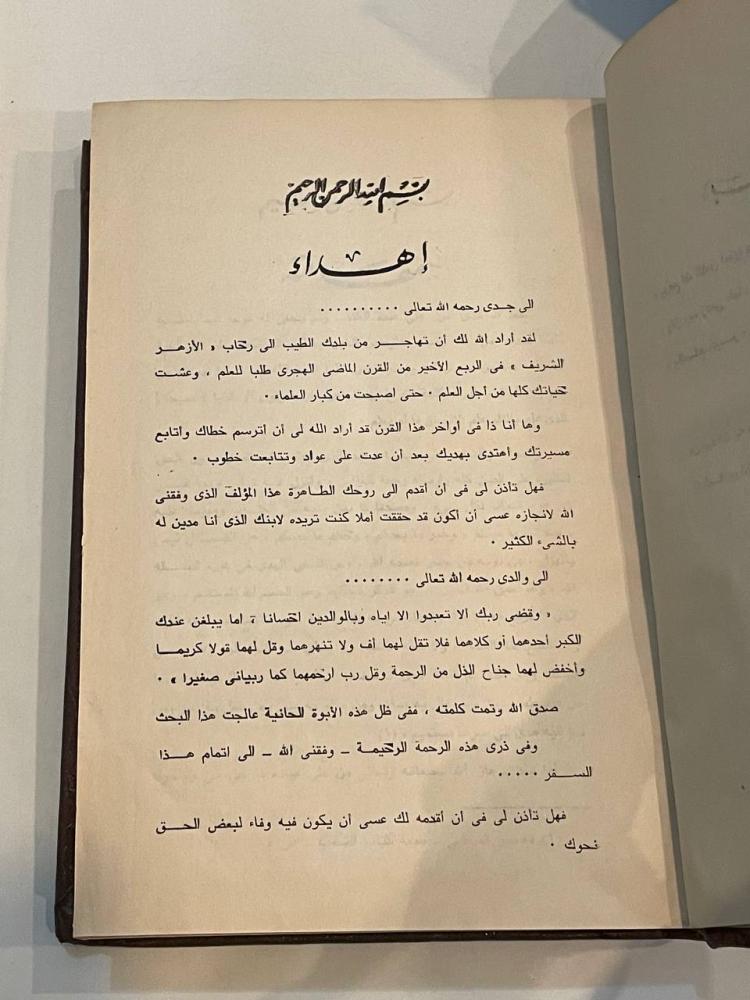 بسم الله الرحمن الرحيم
إهداء
الى جدى رحمه الله تعالى ..........
لقد أراد الله لك أن تهاجر من بلدك الطيب الى رحاب « الأزهر
الشريف » فى الربع الأخير من القرن الماضى الهجرى طلبا للعلم ، وعشت
حياتك كلها من أجل العلم . حتى اصبحت من كبار العلماء .
وها أنا ذا فى أواخر هذا القرن قد أراد الله لى أن اترسم خطاك وأتابع
مسيرتك واهتدى بهديك بعد أن عدت على عواد وتتابعت خطوب .
فهل تأذن لى فى أن أقدم الى روحك الطاهرة هذا المؤلف الذى وفقنى
الله لانجازه عسى أن أكون قد حققت أملا كنت تريده لابنك الذى أنا مدين له
بالشىء الكثير .
الى والدى رحمه الله تعالى ........
« وقضى ربك ألا تعبدوا الا اياه وبالوالدين احسانا ، اما يبلغن عندك
الكبر أحدهما أو كلاهما فلا تقل لهما أف ولا تنهرهما وقل لهما قولا كريما
وأخفض لهما جناح الذل من الرحمة وقل رب ارحمهما كما ربيانى صغيرا » .
صدق الله وتمت كلمته ، ففى ظل هذه الأبوة الحانية عالجت هذا البحث
وفى ذرى هذه الرحمة الرحيمة – وفقنى الله – الى اتمام هذا
السفر .....
فهل تأذن لى فى أن أقدمه لك عسى أن يكون فيه وفاء لبعض الحق
نحوك .